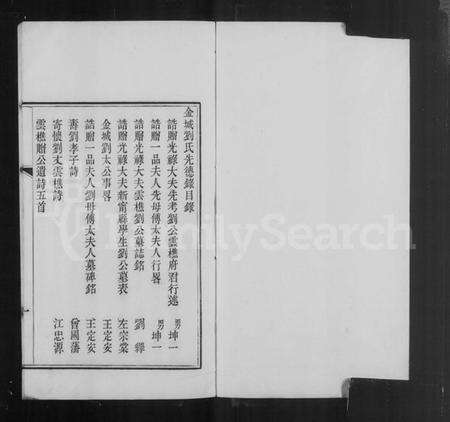 金城劉氏先德錄目錄
誥贈光祿大夫先考劉公雲樵府君行述 男坤一
誥贈一品夫人先母傅太夫人行畧 男坤一
誥贈光祿大夫雲樵劉公墓誌銘 劉繹
誥贈光祿大夫新甯縣學生劉公墓表 左宗棠
金城劉太公事畧 王定安
誥贈一品夫人劉母傅太夫人墓碑銘 王定安
書劉孝子詩 曾國藩
寄懷劉丈雲樵詩 江忠源
雲樵贈公遺詩五首
FamilySearch